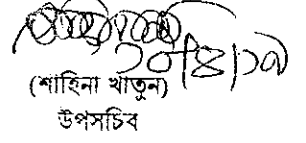 ২০/৪/১৭
(শাহিনা খাতুন)
উপসচিব